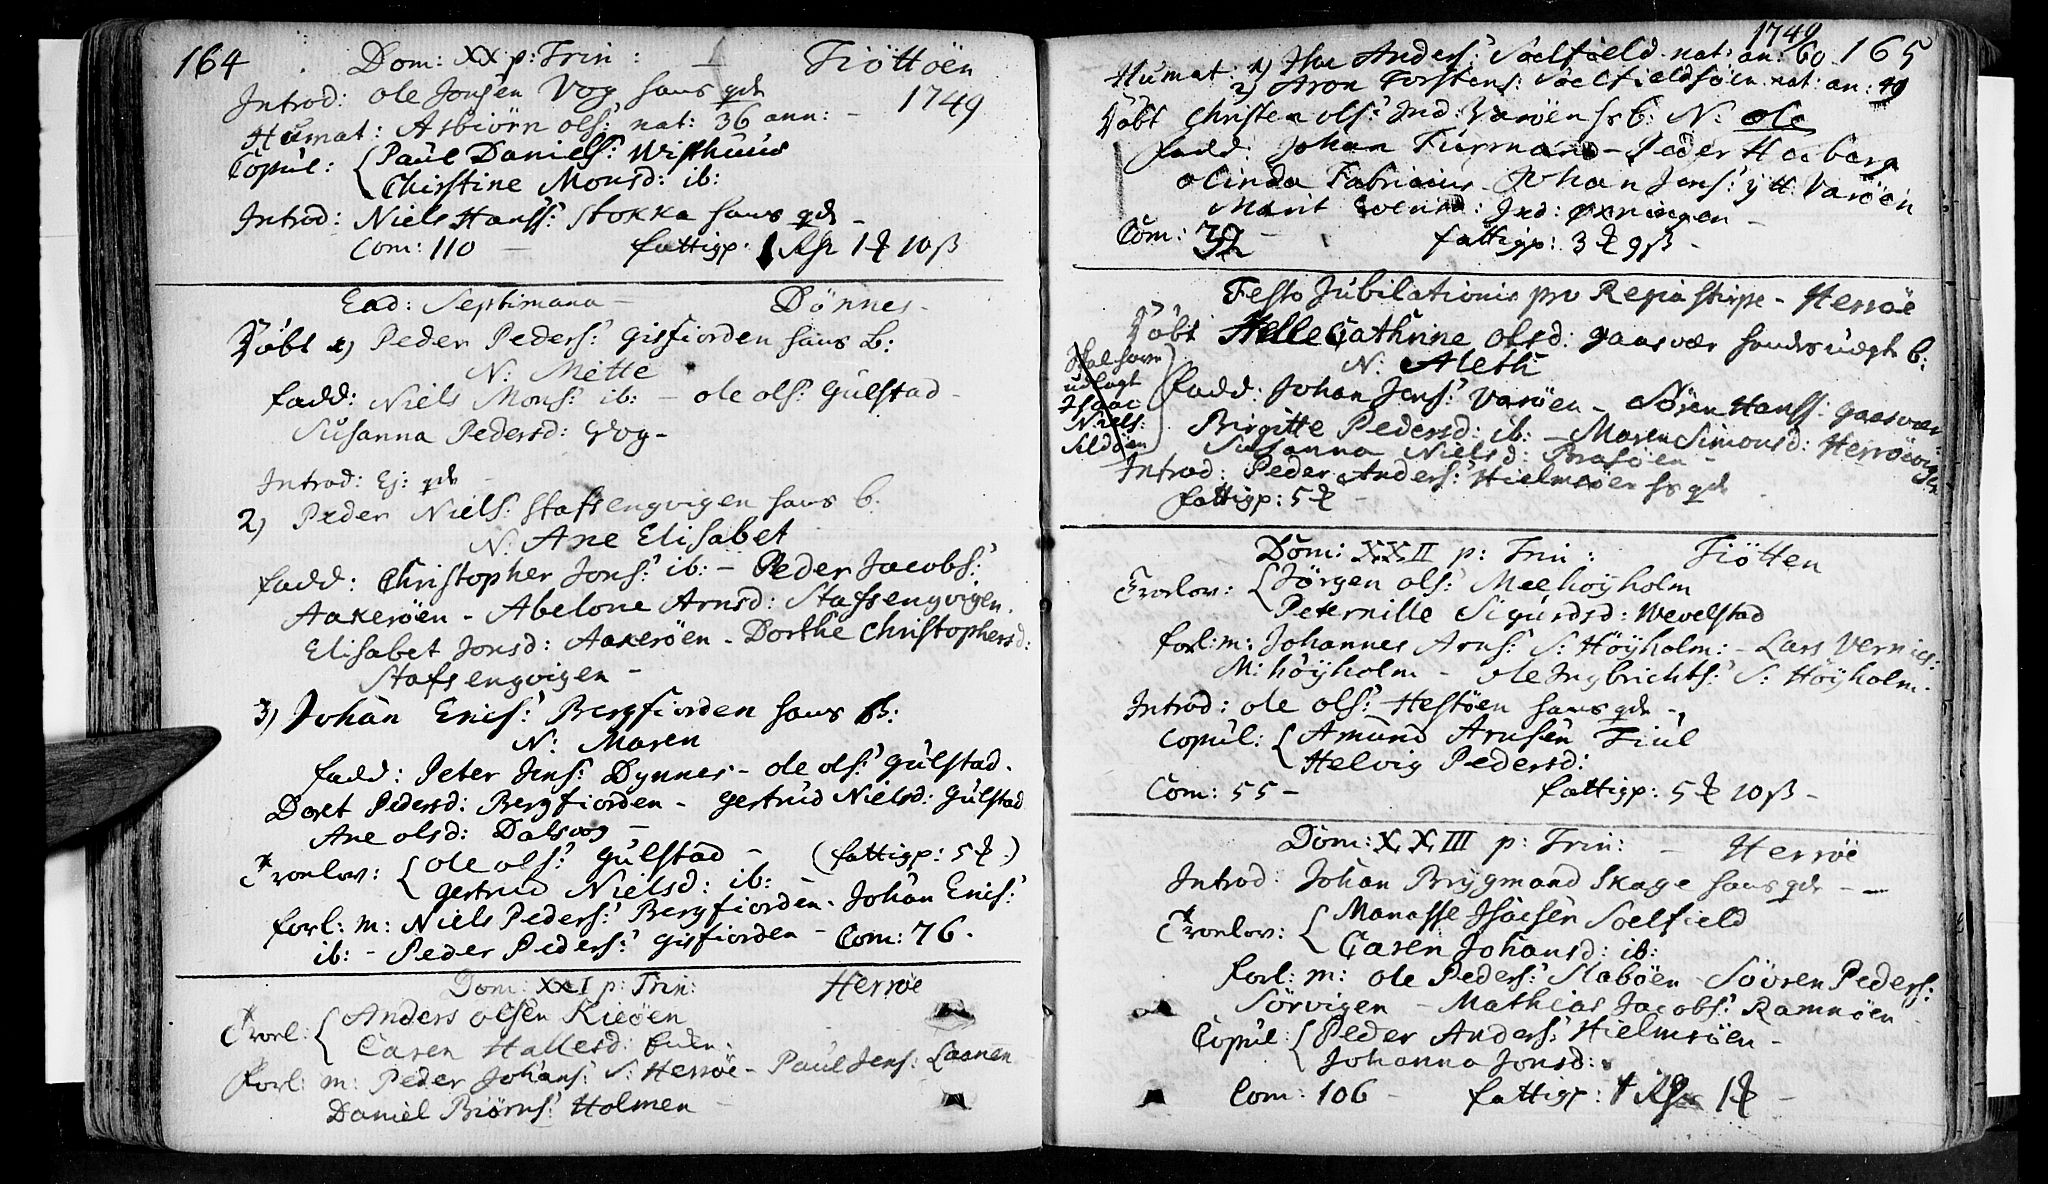 164 Dom: XX p: Trin: Tiöttöen
Introd: Ole Jonsen Vog hans qde 1749
Humat: Asbiörn ols: nat: 36 ann: -
Copul: Paul Daniels: Wisthuus
Christine Monsd: ib:
Introd: Niels Hanss: Stokka hans qde -
Com: 110 - fattigp: 1 Rdr 1 ℔ 10 ß
Ead: Septimana - Dönnes -
Döbt 1) Peder Peders: Gisfiorden hans B:
N: Mette
fadd: Niels Mons: ib: - ole ols: Gulstad -
Susanna Pedersd: Vog -
Introd: Ej: qde -
2) Peder Niels: Stafsengvigen hans b:
N: Ane Elisabet
fadd: Christopher Jons: ib: - Peder Jacobs:
Aakeröen - Abelone Arnsd: Stafsengvigen.
Elisabet Jonsd: Aakeröen - Dorthe Christophersd:
Stafsengvigen -
3) Johan Erics: Bergfiorden hans B:
N: Maren
fadd: Peter Jens: Dynnes - ole ols: Gulstad.
Doret Pedersd: Bergfiorden - Gertrud Nielsd: Gulstad
Ane olsd: Dalsvog -
Trolov: ole ols: Gulstad - (fattigp: 5 ℔.)
Gertrud Nielsd: ib: -
forl: m: Niels Peders: Bergfiorden. Johan Erics:
ib: - Peder Peders: Gisfiorden - Com: 76.
Dom: XXI p: Trin: Herröe
Trorl: Anders Olsen Rieöen
Caren Hallesd:
forl: m: Peder Johans: S: Herröe - Paul Jens: Laanen
Daniel Biörns: Holmen -
1749 165
Humat: 1) Anders: Soelfield nat: an: 60
2) Aron Torstens: Soelfieldsöen nat: an: 49
Döbt Christen ols: Ind: Varöen hs b: N: ole
fadd: Johan Turmand - Peder Heiberg
Olinda Fabricius Johan Jens: Varöen
Marit Evensd: Ind: Öxningen -
Com: 72 - fattigp: 3 ℔ 9 ß -
Festo Jubilationis pro Regia Stirpe - Herröe
Döbt Helle Cathrine olsd: Gaasvær hendes uægte b:
N: Aleth
Skal have
udlagt
Isaac
Niels:
Sildöen
fadd: Johan Jens: Varöen - Sören Hanss: Gaasvær
Birgitte Pedersd: ib: - Maren Simonsd: Herröevigen
Susanna Nielsd: Brasöen -
Introd: Peder Anders: Hielmsöen hs qde
fattigp: 5 ℔ -
Dom: XXII p: Trin: Tiötten
Trolov: Jörgen ols: Meehöyholm
Peternille Sigurdsd: Wevelstad
forl: m: Johannes Arns: S: Höyholm: - Lars Vernics:
M: höyholm - ole Ingbrichts: S: Höyholm.
Introd: ole ols: Hestöen hans qde -
Copul: Amund Arnsen Tiul
Helvig Pedersd:
Com: 55 - fattigp: 5 ℔ 10 ß -
Dom: XXIII p: Trin: - Herröe
Introd: Johan Brygmand Skage hans qde - -
Trolov: Manasse Isacsen Soelfield
Caren Johansd: ib:
forl: m: ole Peders: Slaböen - Sövren Peders:
Sörvigen - Mathias Jacobs: Ramnöen
Copul: Peder Anders: Hielmsöen -
Johanna Jonsd:
Com: 106 - fattigp: 1 Rdr 1 ℔ -